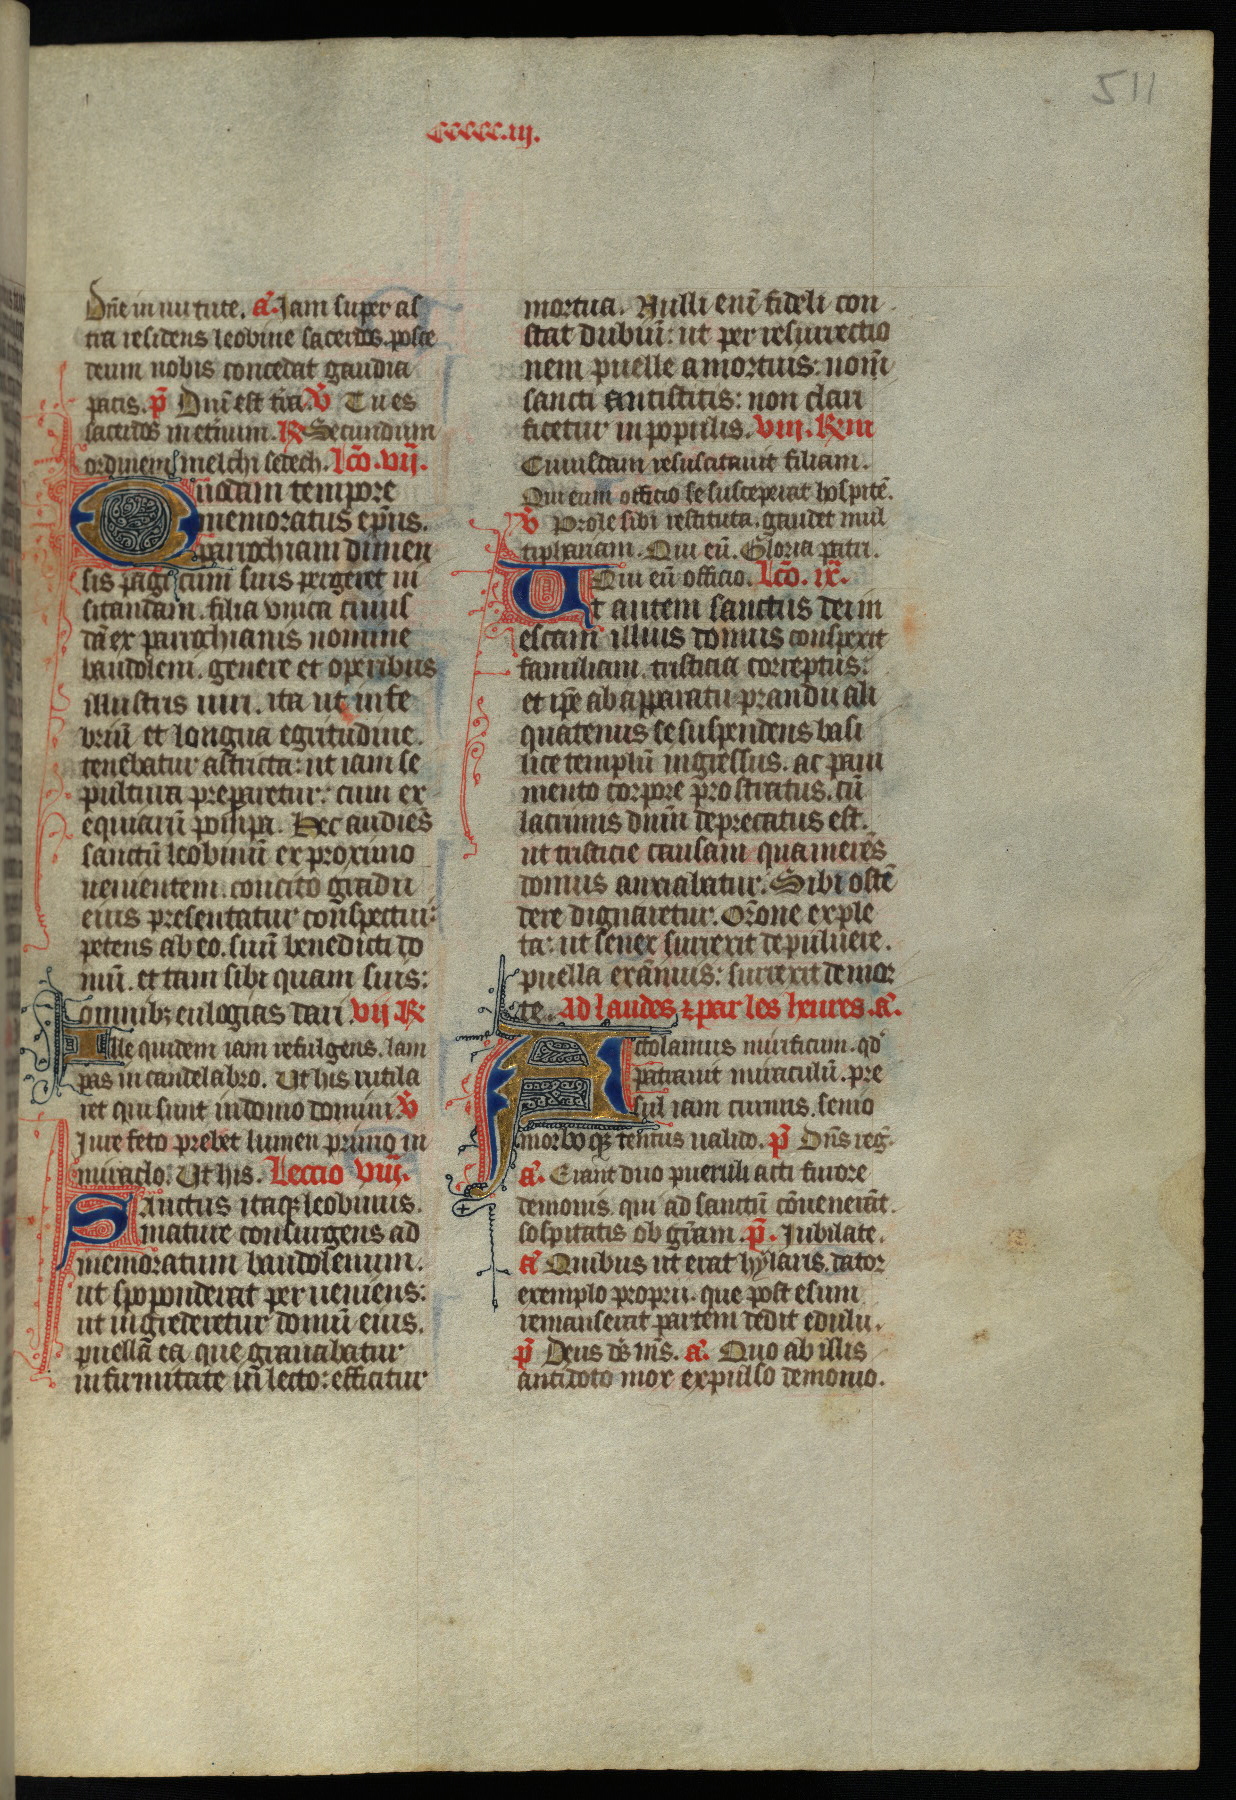 511
CCCCC.iij.
Dñe in uirtute. a᷑. Iam super as
tra residens leobine sacerdos. posce
deum nobis concedat gaudia
pacis. p̃ Dñi est t̃ra. V̾ Tu es
sacerdos in eternum. R̾ Secundum
ordinem melchisedech. lc̃o. vij.
Quodam tempore
memoratus ep̃us.
parrochiam dunen
sis pagi cum suis pergeret ui
sitandam. filia vnica cuius
dã ex parrochianis nomine
baudoleni. genere et operibus
illustris uiri. ita ut in fe
briũ et longua egritudine.
tenebatur astricta: ut iam se
pultura prepararetur: cum ex
equiarũ pompa. Hec audiẽs
sanctũ leobinũ ex proximo
uenientem. concito gradu
eius presentatur conspectui:
petens ab eo. suũ benedici do
mũ. et tam sibi quam suis:
omnibꝫ eulogias dari. vij R̾
Ille quidem iam refulgens. lam
pas in candelabro. Ut his rutila
ret qui sunt in domo domini. V̾
Iure feto prebet lumen primo in
miraclo. Ut his. Lectio viij.
Sanctus itaqꝫ leobinus.
mature consurgens ad
memoratum baudolenum.
ut spoponderat perueniens:
ut ingrederetur domũ eius.
puellã ea que grauabatur
infirmitate in lecto: efficitur
mortua. Nulli enĩ fideli con
stat dubiũ: ut per resurrectio
nem puelle a mortuis: nom̃
sancti antistitis: non clari
ficetur in populis. viij. R̾m
Cuiusdam resuscitauit filiam.
Qui eum officio se susceperat hospitẽ.
V̾ Prole sibi restituta. gaudet mul
tiphariam. Qui eũ. Gloria patri.
Qui eũ officio. Lc̃o. ix.
Ut autem sanctus dei in
escam illius domus conspexit
familiam. tristicia correptus:
et ip̃e ab apparatu prandii ali
quatenus se suspendens basi
lice templũ ingressus. ac paui
mento corpore prostratus. cũ
lacrimis dnm̃ deprecatus est.
ut tristicie causam qua merẽs
domus anxiabatur. Sibi ostẽ
dere dignaretur. Or̃one exple
ta: ut senex surrexit de puluere.
puella exãnimis: surrexit de mor
te. Ad laudes ⁊ par les heures. a᷑.
Actolamus mirificum. qd̾
patrauit miraculũ. pre
sul iam curuus. senio
morboqꝫ tentus ualido. p̃ Dñs reg̃.
a᷑. Erant duo pueruli acti furore
demonis. qui ad sanctũ cõuenerãt.
sospitatis ob gr̃am. p̃. Iubilate.
a᷑ Quibus ut erat hylaris. dator
exemplo proprii. que post esum
remanserat partem dedit edulii.
p̃ Deus ds̃ m̃s. a᷑. Quo ab illis
antidoto mox expulso demonio.